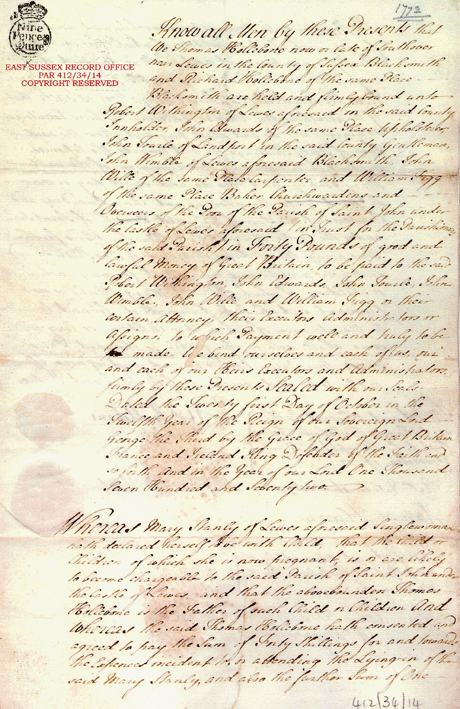 Nine
Pence pr
Quire
1772
EAST SUSSEX RECORD OFFICE
PAR 412/34/14
COPYRIGHT RESERVED
Know all Men by these Presents that
We Thomas Holleborne now or late of Southover
near Lewes in the County of Sussex Blacksmith
and Richard Holleborne of the same Place
Blacksmith are held and firmly bound unto
Robert Withington of Lewes aforesaid in the said County
Ironholder John Edwards of the same Place Upholsterer
John of Landport in the said County Gentleman
John Wimble of Lewes aforesaid Blacksmith John
Wille of the same Place Carpenter and William Fugg
of the same Place Baker Churchwardens and
Overseers of the Poor of the Parish of Saint John under
the Castle of Lewes aforesaid (in Trust for the Parishioners
of the said Parish) in Forty Pounds of good and
lawful Money of Great Britain, to be paid to the said
Robert Withington, John Edwards, John John
Wimble, John Wille and William Fugg or their
certain Attorney their Executors Administrators or
Assigns to which Payment well and truly to be
made We bind ourselves and each of us our
and each of our Heirs Executors and Administrators
firmly by these Presents Sealed with our Seals
Dated the Twenty first Day of October in the
Twelfth Year of the Reign of our Sovereign Lord
George the Third by the Grace of God of Great Britain
France and Ireland King Defender of the Faith and
so forth And in the Year of our Lord One Thousand
Seven Hundred and Seventy two.
Whereas Mary Stanly of Lewes aforesaid Singlewoman
hath declared herself to be with Child, that the Child or
Children of which she is now pregnant, is or are likely
to become chargeable to the said Parish of Saint John under
the Castle of Lewes, and that the abovebounden Thomas
Holleborne is the Father of such Child or Children And
Whereas the said Thomas Holleborne hath consented and
agreed to pay the Sum of Forty Shillings for and towards
the Expences incident to, or attending the Lying in of the
said Mary Stanly, and also the further Sum of One
412/34/14